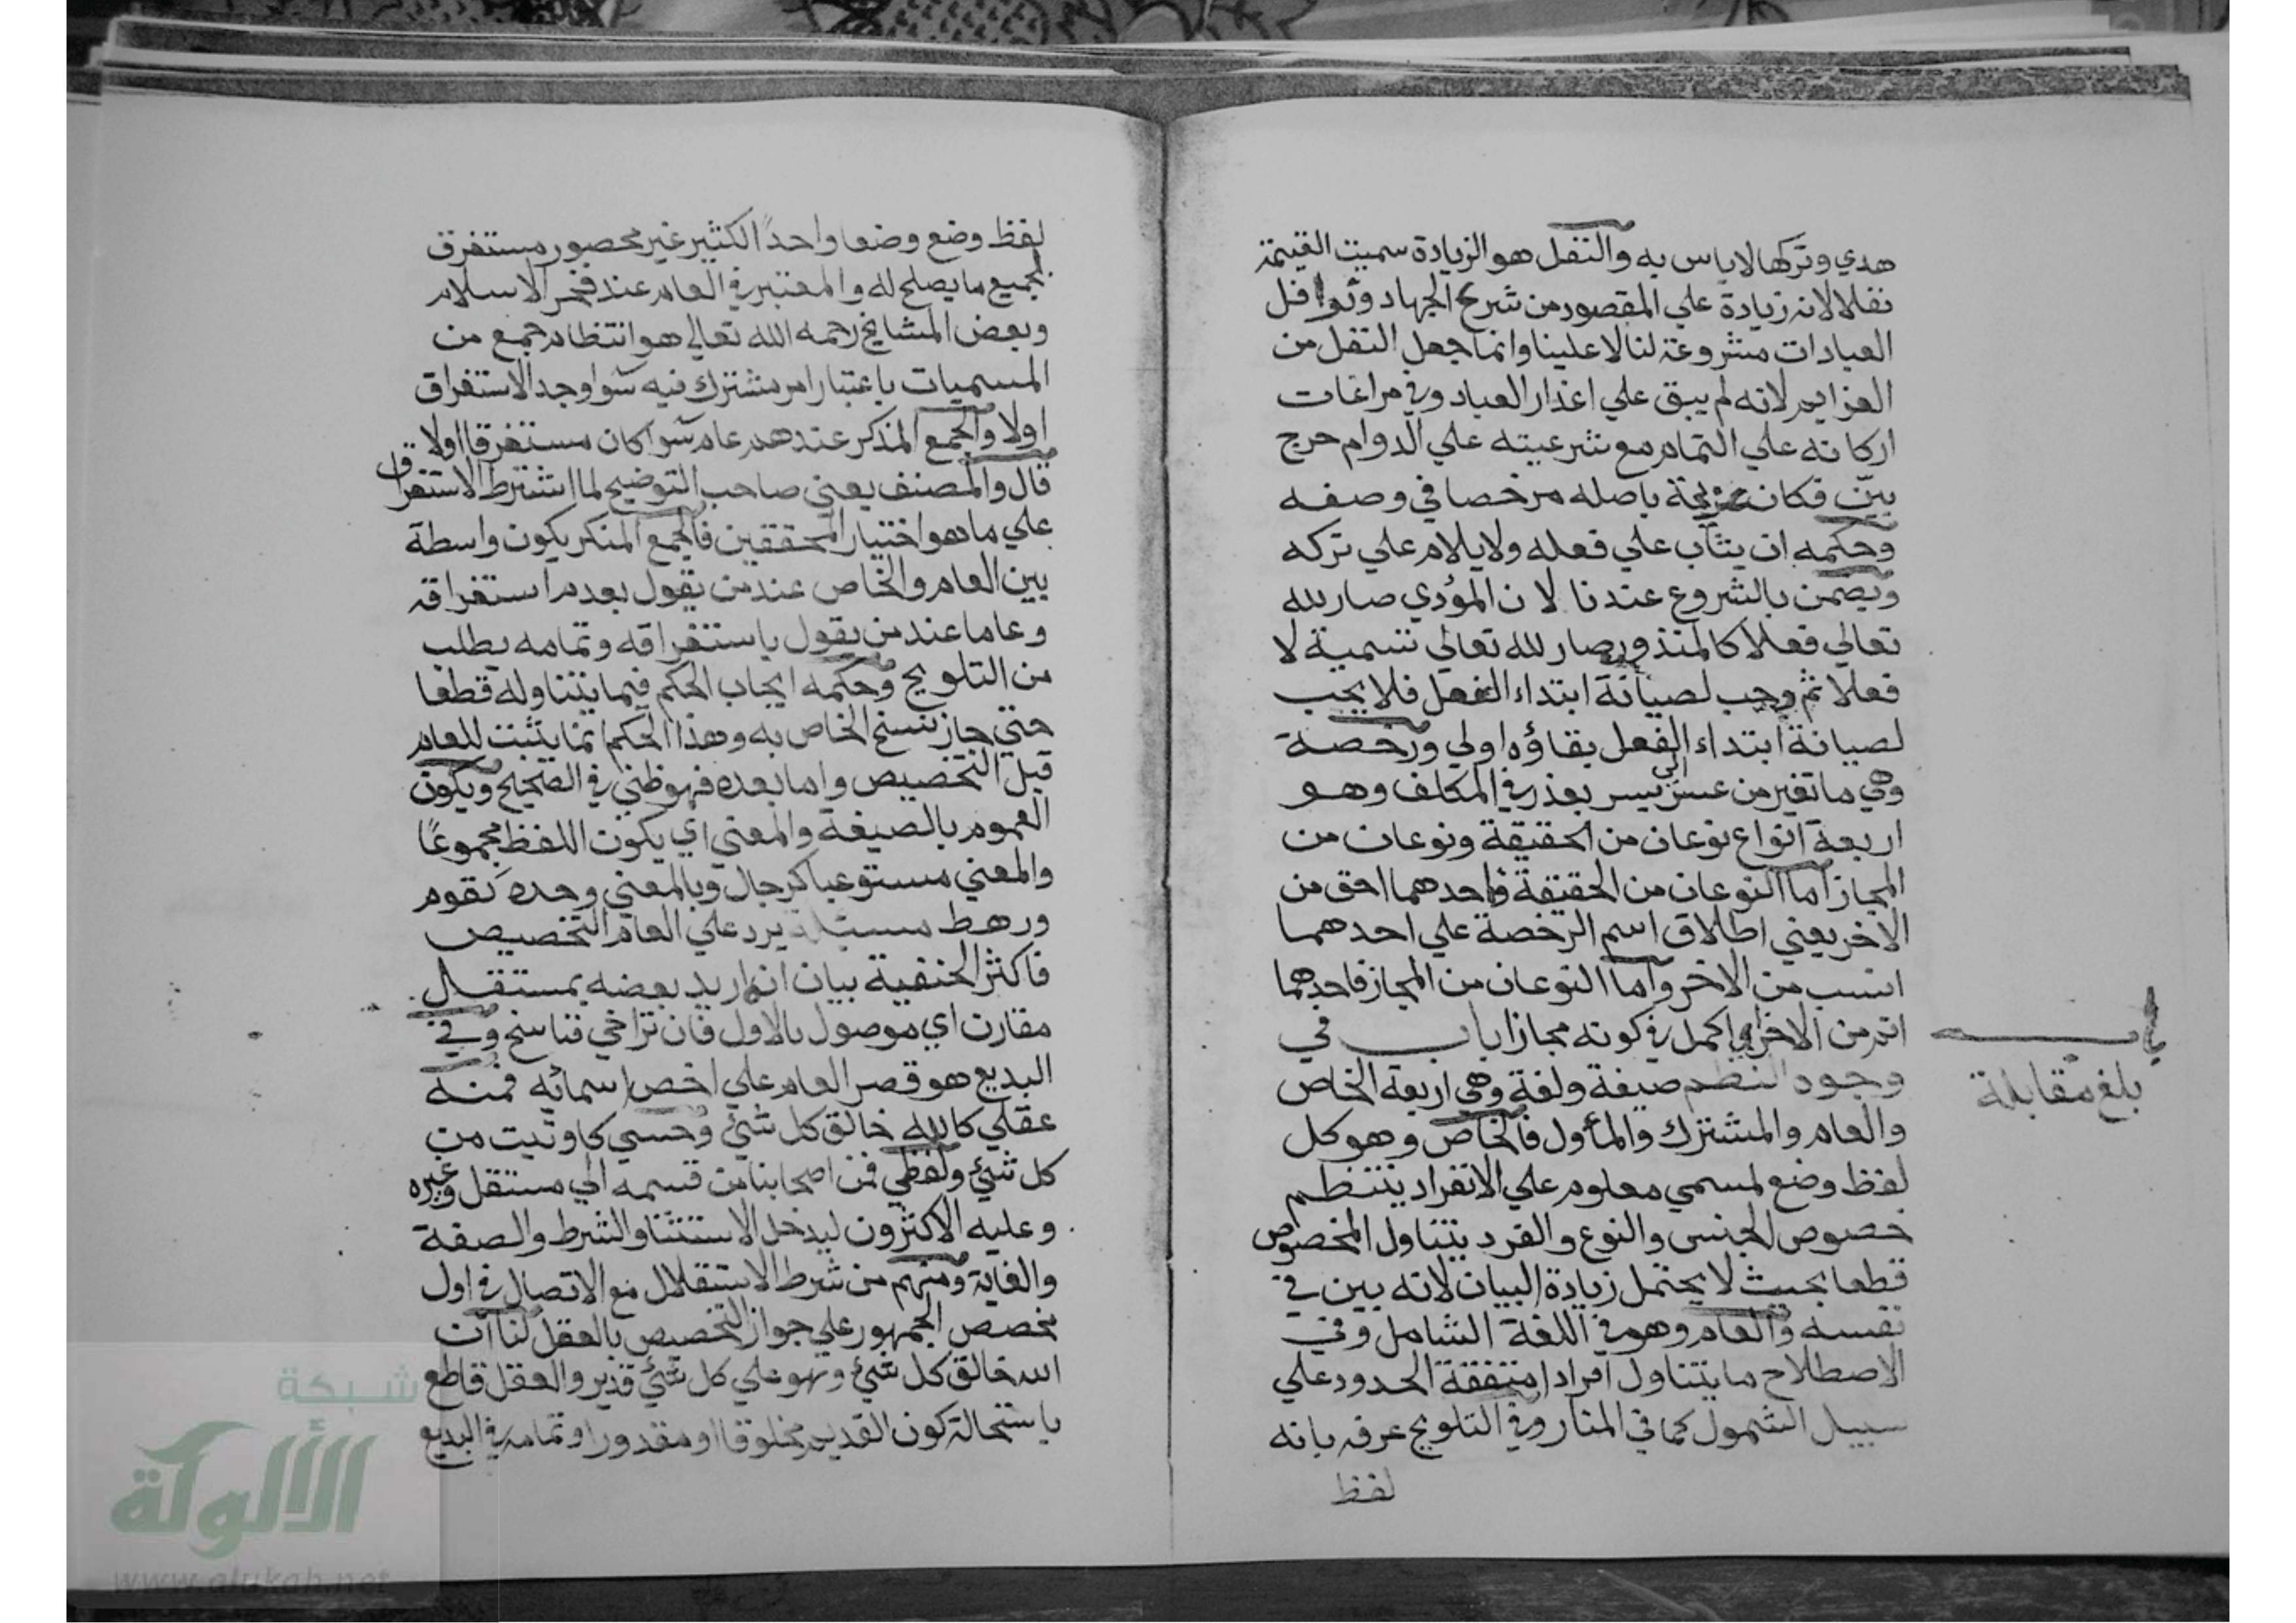 هدي وتركها لا باس به والنفل هو الزيادة سميت الغنيمة
نفلا لانه زيادة علي المقصود من شرع الجهاد ونوافل
العبادات مشروعة لنا لا علينا وانما جعل النفل من
العزايم لانه لم يبق علي اعذار العباد وفي مراعات
اركانه علي التمام مع شرعيته علي الدوام حرج
بين فكان عزيمة باصله مرخصا في وصفه
وحكمه ان يثاب علي فعله ولا يلام علي تركه
ويضمن بالشروع عندنا لان المؤدي صار لله
تعالي فعلا كالمنذور صار لله تعالي تسمية لا
فعلا ثم وجب لصيانة ابتداء الفعل فلا يجب
لصيانة ابتداء الفعل بقاؤه اولي ورخصة
وهي ما تغير من عسر الي يسر بعذر في المكلف وهو
اربعة انواع نوعان من الحقيقة ونوعان من
المجاز اما النوعان من الحقيقة فاحدهما احق من
الاخر يعني اطلاق اسم الرخصة علي احدهما
انسب من الاخر واما النوعان من المجاز فاحدهما
اتم من الاخر اي اكمل في كونه مجازا باب في
وجود النظم صيغة ولغة وهي اربعة الخاص
والعام والمشترك والمأول فالخاص وهو كل
لفظ وضع لمسمي معلوم علي الانفراد ينتظم
خصوص الجنس والنوع والفرد يتناول المخصوص
قطعا بحيث لا يحتمل زيادة البيان لانه بين في
نفسه والعام وهو في اللغة الشامل وفي
الاصطلاح ما يتناول افرادا متفقة الحدود علي
سبيل الشمول كما في المنار وفي التلويح عرفه بانه
لفظ
باب
بلغ مقابلة
لفظ وضع وضعا واحدا لكثير غير محصور مستغرق
لجميع ما يصلح له والمعتبر في العام عند فخر الاسلام
وبعض المشايخ رحمه الله تعالي هو انتظام جمع من
المسميات باعتبار امر مشترك فيه سوا وجد الاستغراق
اولا والجمع المذكر عندهم عام سوا كان مستغرقا اولا
قال والمصنف يعني صاحب التوضيح لما اشترط الاستغراق
علي ما هو اختيار المحققين فالجمع المنكر يكون واسطة
بين العام والخاص عند من يقول بعدم استغراقه
وعاما عند من يقول باستغراقه وتمامه يطلب
من التلويح وحكمه ايجاب الحكم فيما يتناوله قطعا
حتي جاز نسخ الخاص به وهذا الحكم انما يثبت للعام
قبل التخصيص واما بعده فهو ظني في الصحيح ويكون
العموم بالصيغة والمعني اي يكون اللفظ مجموعا
والمعني مستوعبا كرجال وبالمعني وحده كقوم
ورهط مسئلة يرد علي العام التخصيص
فاكثر الحنفية بيان انه اريد بعضه بمستقل
مقارن اي موصول بالاول فان تراخي فناسخ وفي
البديع هو قصر العام علي اخص اسمائه فمنه
عقلي كالله خالق كل شيئ وحسي كاوتيت من
كل شيئ ولفظي فمن اصحابنا من قسمه الي مستقل وغيره
وعليه الاكثرون ليدخل الاستثنا والشرط والصفة
والغاية ومنهم من شرط الاستقلال مع الاتصال في اول
مخصص الجمهور علي جواز التخصيص بالعقل لنا ان
الله خالق كل شيئ وهو علي كل شيئ قدير والعقل قاطع
باستحالة كون القديم مخلوقا او مقدورا وتمامه في البديع
شبكة
الألوكة
www.alukah.net